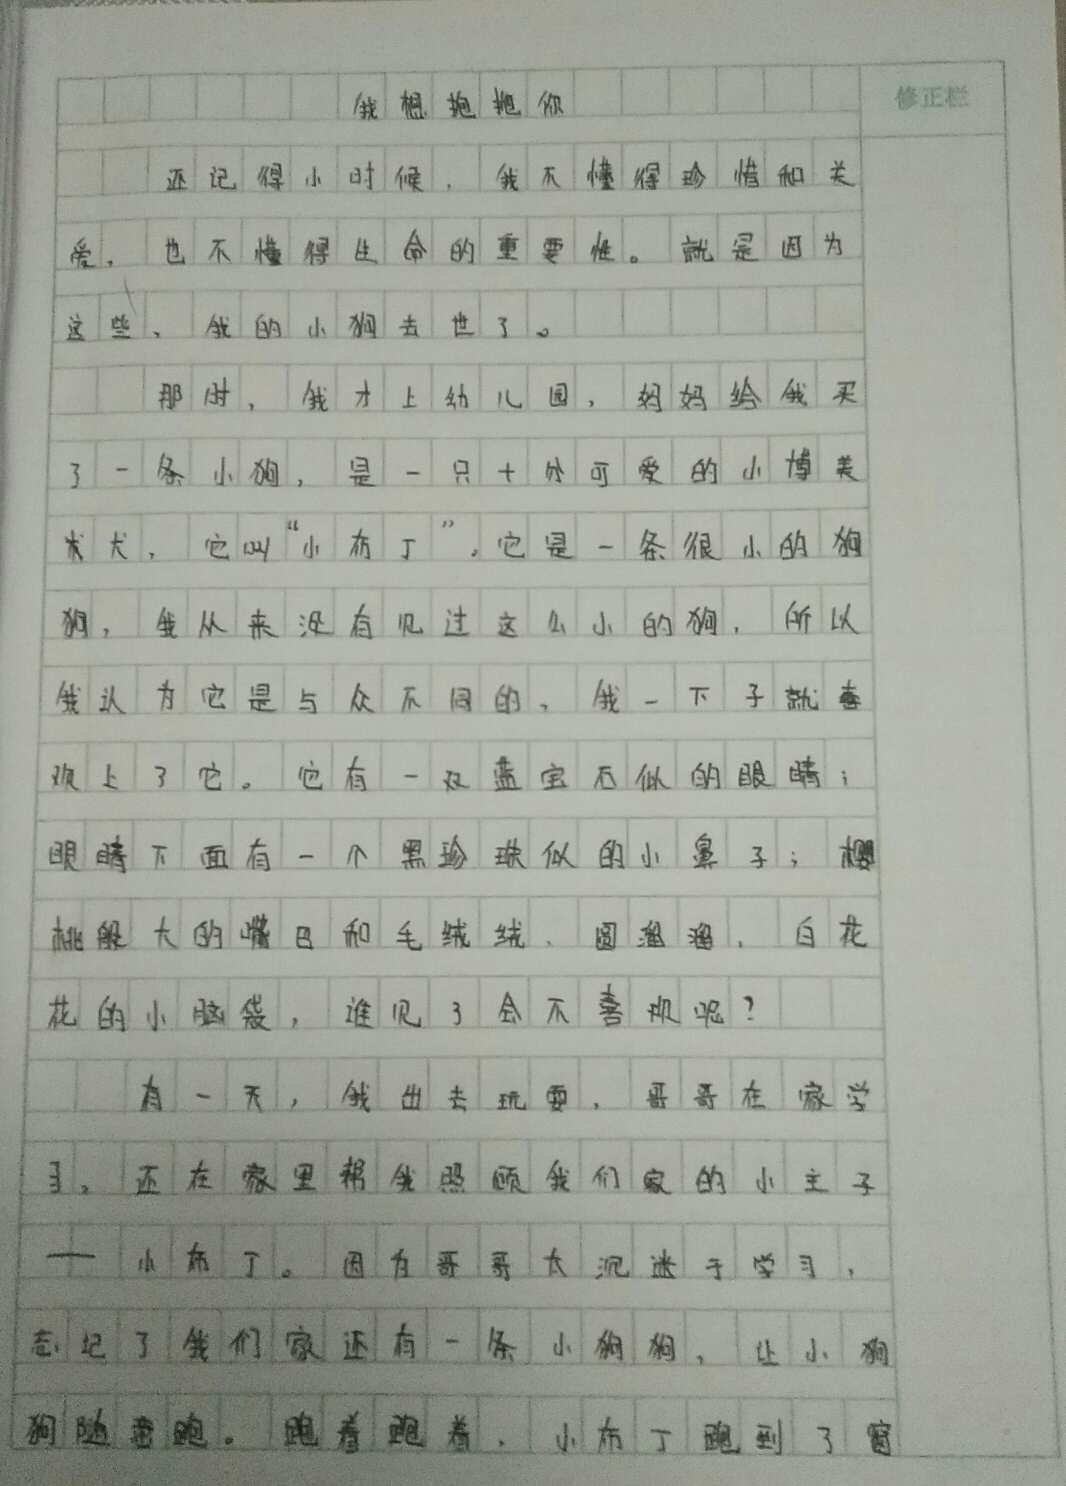 我想抱抱你
修正栏
还记得小时候，我不懂得珍惜和关
爱，也不懂得生命的重要性。就是因为
这些，我的小狗去世了。
那时，我才上幼儿园，妈妈给我买
了一条小狗，是一只十分可爱的小博美
犬，它叫“小布丁”，它是一条很小的狗
狗，我从来没有见过这么小的狗，所以
我认为它是与众不同的，我一下子就喜
欢上了它。它有一双蓝宝石似的眼睛；
眼睛下面有一个黑珍珠似的小鼻子；樱
桃般大的嘴巴和毛绒绒、圆溜溜、白花
花的小脑袋，谁见了会不喜欢呢？
有一天，我出去玩耍，哥哥在家学
习。还在家里帮我照顾我们家的小主子
——小布丁。因为哥哥太沉迷于学习，
忘记了我们家还有一条小狗狗，让小狗
狗随意跑。跑着跑着，小布丁跑到了窗